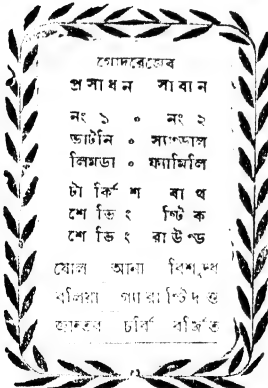 গোদরেজের
প্রসাধন সাবান
নং ১ ০ নং ২
ভাটনি ০ স্যাণ্ডাল
লিমডা ০ ফ্যামিলি
টার্কিশ বাথ
শেভিং ষ্টিক
শেভিং রাউণ্ড
ষোল আনা বিশুদ্ধ
বলিয়া গ্যারাণ্টিদত্ত
জান্তব চর্বি বর্জিত